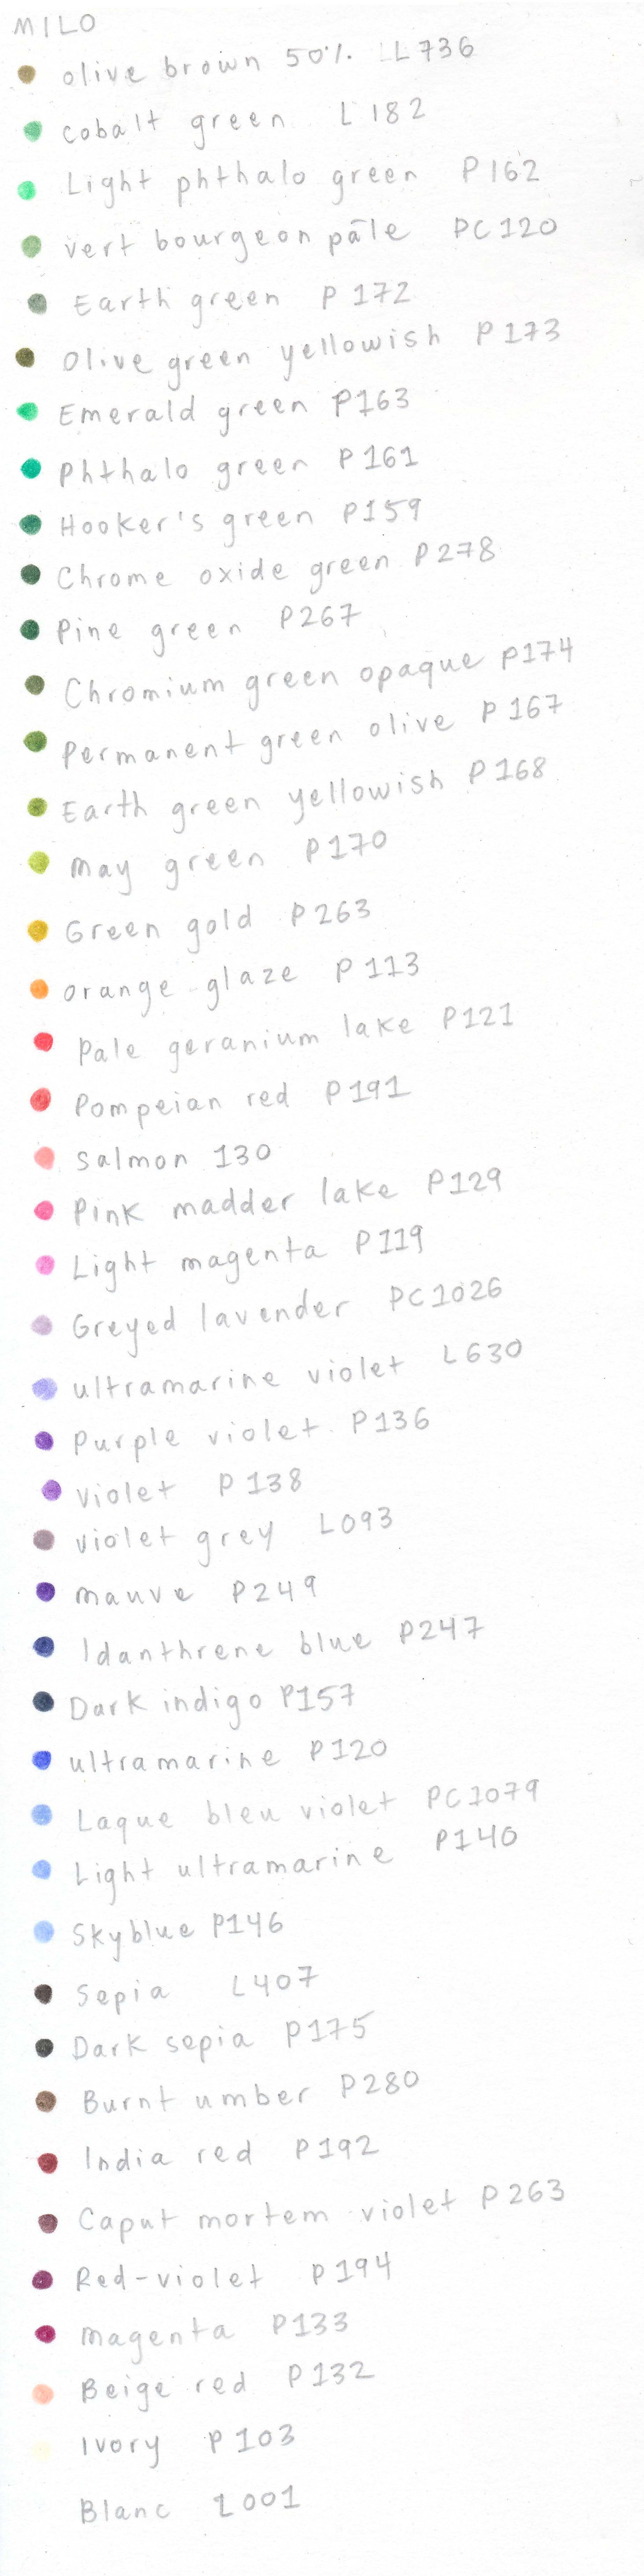 MILO
olive brown 50% L736
cobalt green L182
Light phthalo green P162
vert bourgeon pâle PC120
Earth green P172
Olive green yellowish P173
Emerald green P163
Phthalo green P161
Hooker's green P159
Chrome oxide green P278
Pine green P267
Chromium green opaque P174
Permanent green olive P167
Earth green yellowish P168
May green P170
Green gold P263
orange glaze P113
Pale geranium lake P121
Pompeian red P191
Salmon 130
Pink madder lake P129
Light magenta P119
Greyed lavender PC1026
ultramarine violet L630
Purple violet P136
violet P138
violet grey L093
mauve P249
Idanthrene blue P247
Dark indigo P157
ultramarine P120
Laque bleu violet PC1079
Light ultramarine P140
Skyblue P146
Sepia L407
Dark sepia P175
Burnt umber P280
India red P192
Caput mortem violet P263
Red-violet P194
magenta P133
Beige red P132
Ivory P103
Blanc L001